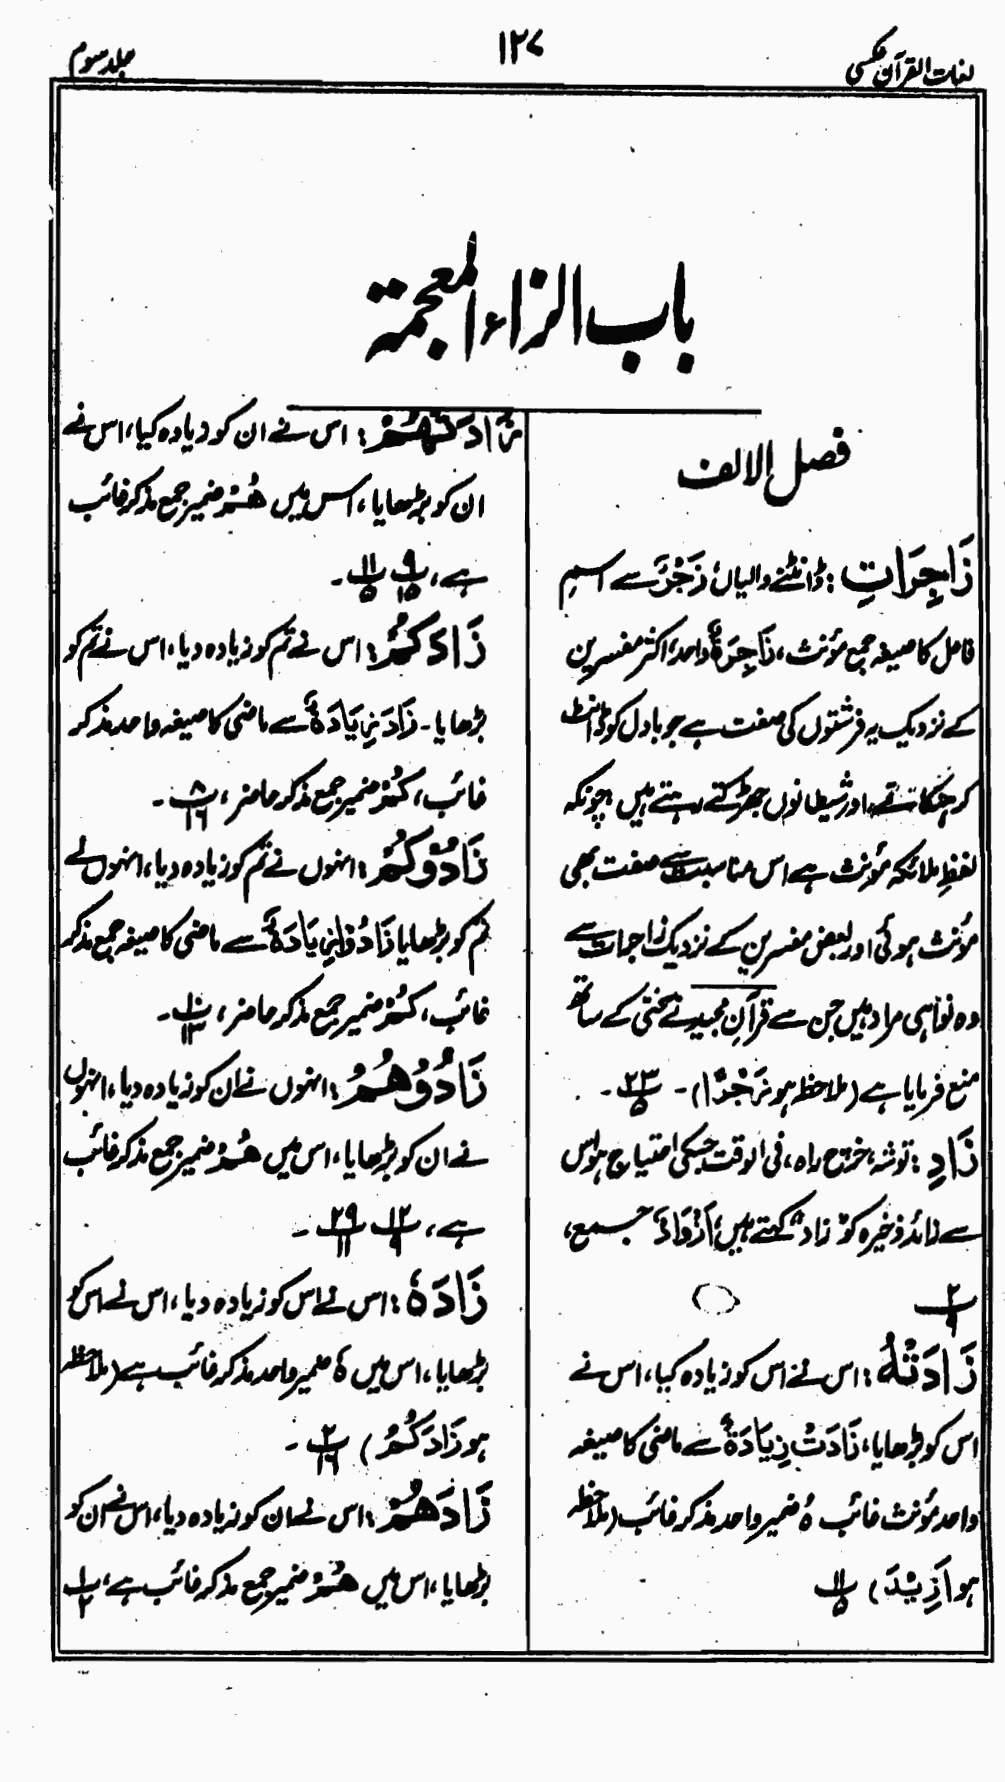 لغات القرآن عکسی
۱۲۷
جلد سوم
باب الزاء المعجمة
فصل الالف
زَاجِرَاتِ: ڈانٹنے والیاں، زَجْرٌ سے اسمِ
فاعل کا صیغہ جمع مؤنث، زَاجِرَةٌ واحد، اکثر مفسرین
کے نزدیک یہ فرشتوں کی صفت ہے جو بادل کو ڈانٹ
کر ہنکاتے اور شیطانوں جھڑکتے رہتے ہیں، چونکہ
لفظِ ملائکہ مؤنث ہے اس مناسبت سے صفت بھی
مؤنث ہوئی اور بعض مفسرین کے نزدیک زاجرات سے
وہ نواہی مراد ہیں جن سے قرآنِ مجید نے سختی کے ساتھ
منع فرمایا ہے (ملاحظہ ہو زَجْرًا)۔ ۲۳/۵۔
زَادِ: توشہ، خرچ راہ، فی الوقت جسکی احتیاج ہو اس
سے زائد ذخیرہ کو زاد کہتے ہیں، اَزْوَادٌ جمع،
۲/۹
زَادَتْهُ: اس نے اس کو زیادہ کیا، اس نے
اس کو بڑھایا، زَادَتْ زِیَادَةٌ سے ماضی کا صیغہ
واحد مؤنث غائب ہُ ضمیر واحد مذکر غائب (ملاحظہ
ہو اَزِیْدَ) ۱۱/۵
زَادَتْهُمْ: اس نے ان کو زیادہ کیا، اس نے
ان کو بڑھایا، اس میں هُمْ ضمیر جمع مذکر غائب
ہے، ۹/۱۵ ۱۱/۵۔
زَادَكُمْ: اس نے تم کو زیادہ دیا، اس نے تم کو
بڑھایا۔ زَادَ زِیَادَةٌ سے ماضی کا صیغہ واحد مذکر
غائب، كُمْ ضمیر جمع مذکر حاضر، ۸/۱۶۔
زَادُوْكُمْ: انہوں نے تم کو زیادہ دیا، انہوں نے
تم کو بڑھایا زَادُوْا زِیَادَةٌ سے ماضی کا صیغہ جمع مذکر
غائب، كُمْ ضمیر جمع مذکر حاضر، ۱۰/۱۳۔
زَادُوْهُمْ: انہوں نے ان کو زیادہ دیا، انہوں
نے ان کو بڑھایا، اس میں هُمْ ضمیر جمع مذکر غائب
ہے، ۱۲/۹ ۲۹/۱۱۔
زَادَهُ: اس نے اس کو زیادہ دیا، اس نے اس کو
بڑھایا، اس میں هُ ضمیر واحد مذکر غائب ہے (ملاحظہ
ہو زَادَكُمْ) ۲/۱۶۔
زَادَهُمْ: اس نے ان کو زیادہ دیا، اس نے ان کو
بڑھایا، اس میں هُمْ ضمیر جمع مذکر غائب ہے، ۱/۲